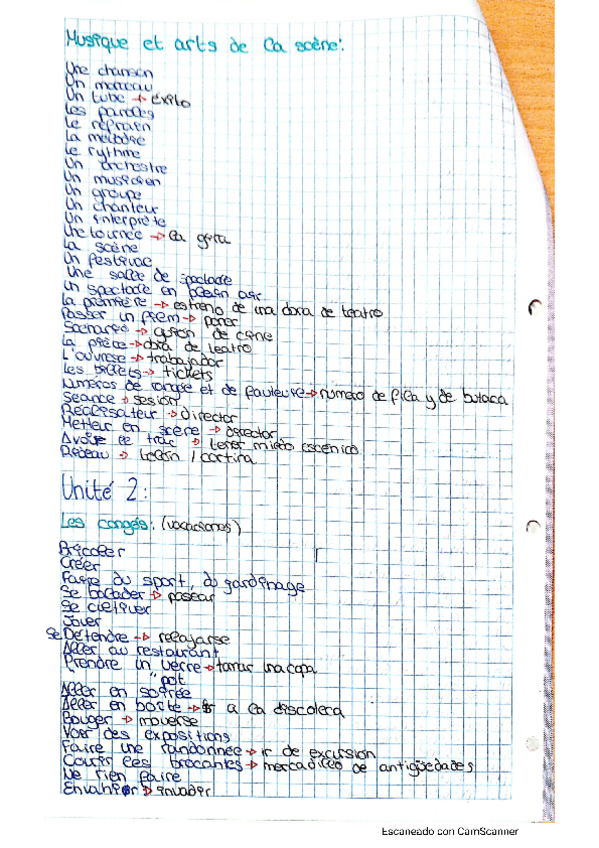 Musique et arts de la scène:
Une chanson
Un morceau
Un tube → éxito
Les paroles
Le refrain
La mélodie
Le rythme
Un orchestre
Un musicien
Un groupe
Un chanteur
Un interprète
Une tournée → la gira
La scène
Un festival
Une salle de spectacle
Un spectacle en plein air
La première → estreno de una obra de teatro
Passer un film → poner
Scénario → guion de cine
La pièce → obra de teatro
L'ouvreuse → trabajador
Les billets → tickets
Numéros de rangée et de fauteuil → numero de fila y de butaca
Séance → sesión
Réalisateur → director
Metteur en scène → director
Avoir le trac → tener miedo escénico
Rideau → telón / cortina
Unité 2:
Les congés: (vacaciones)
Bricoler
Créer
Faire du sport, du jardinage
Se balader → pasear
Se cultiver
Jouer
Se Détendre → relajarse
Aller au restaurant
Prendre un verre → tomar una copa
" pot
Aller en soirée
Aller en boîte → ir a la discoteca
Bouger → moverse
Voir des expositions
Faire une randonnée → ir de excursion
Courir les brocantes → mercadillo de antigüedades
Ne rien faire
Envahir → invadir
Escaneado con CamScanner